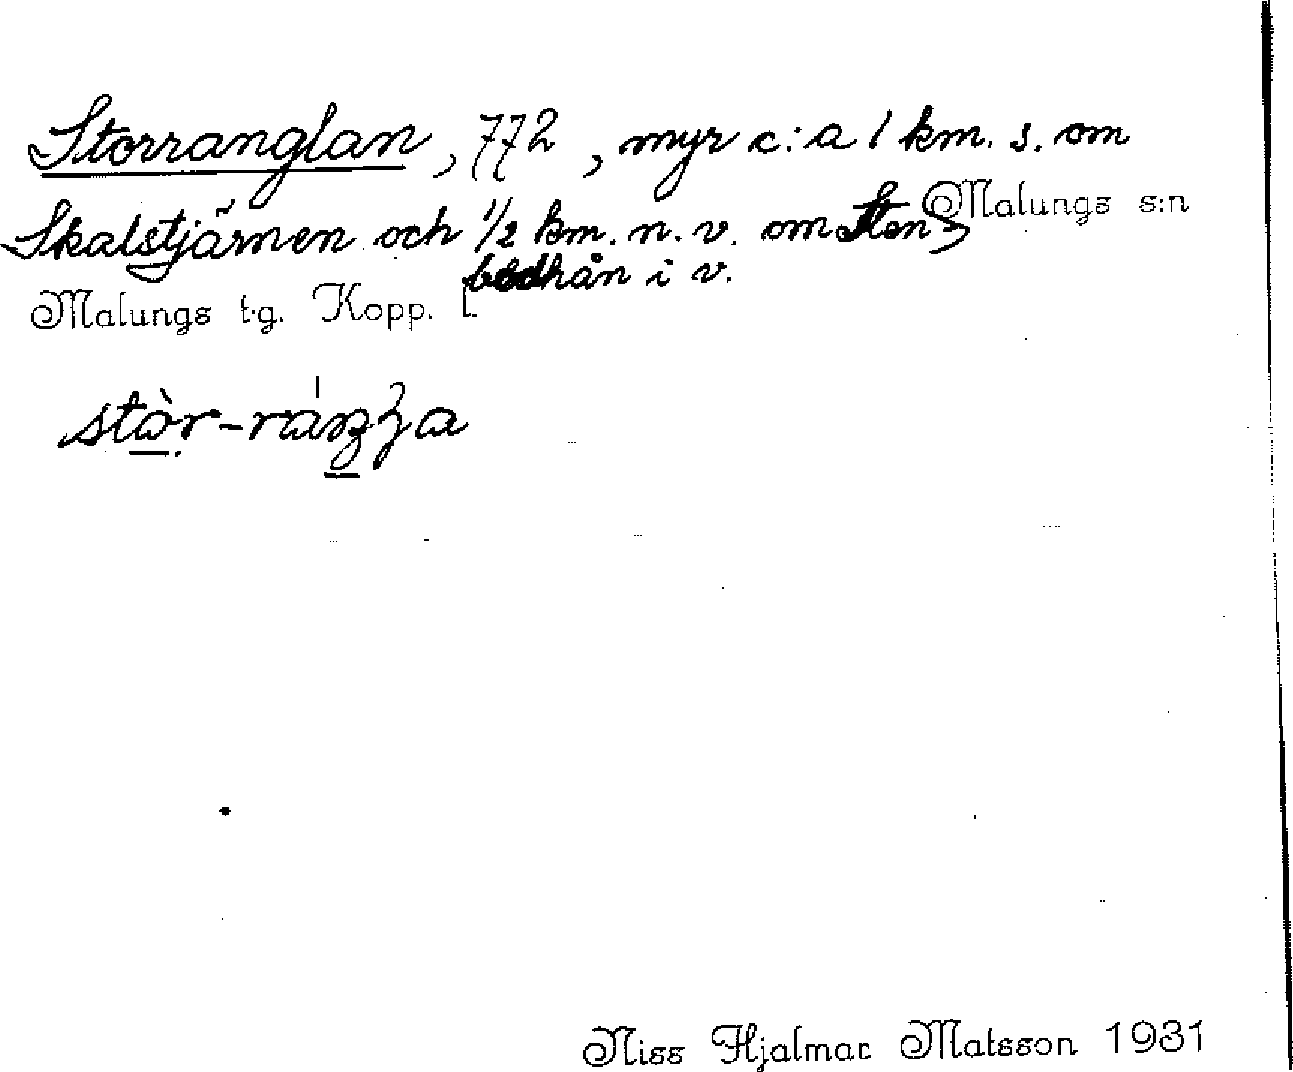 Storranglan, 772, myr c:a 1 km. s. om
Malungs s:n
Skalstjärnen och 1/2 km. n. v. om Sten
bodhån i v.
Malungs t.g. Kopp. L.
stòr-ráŋʒa
Niss Hjalmar Matsson 1931